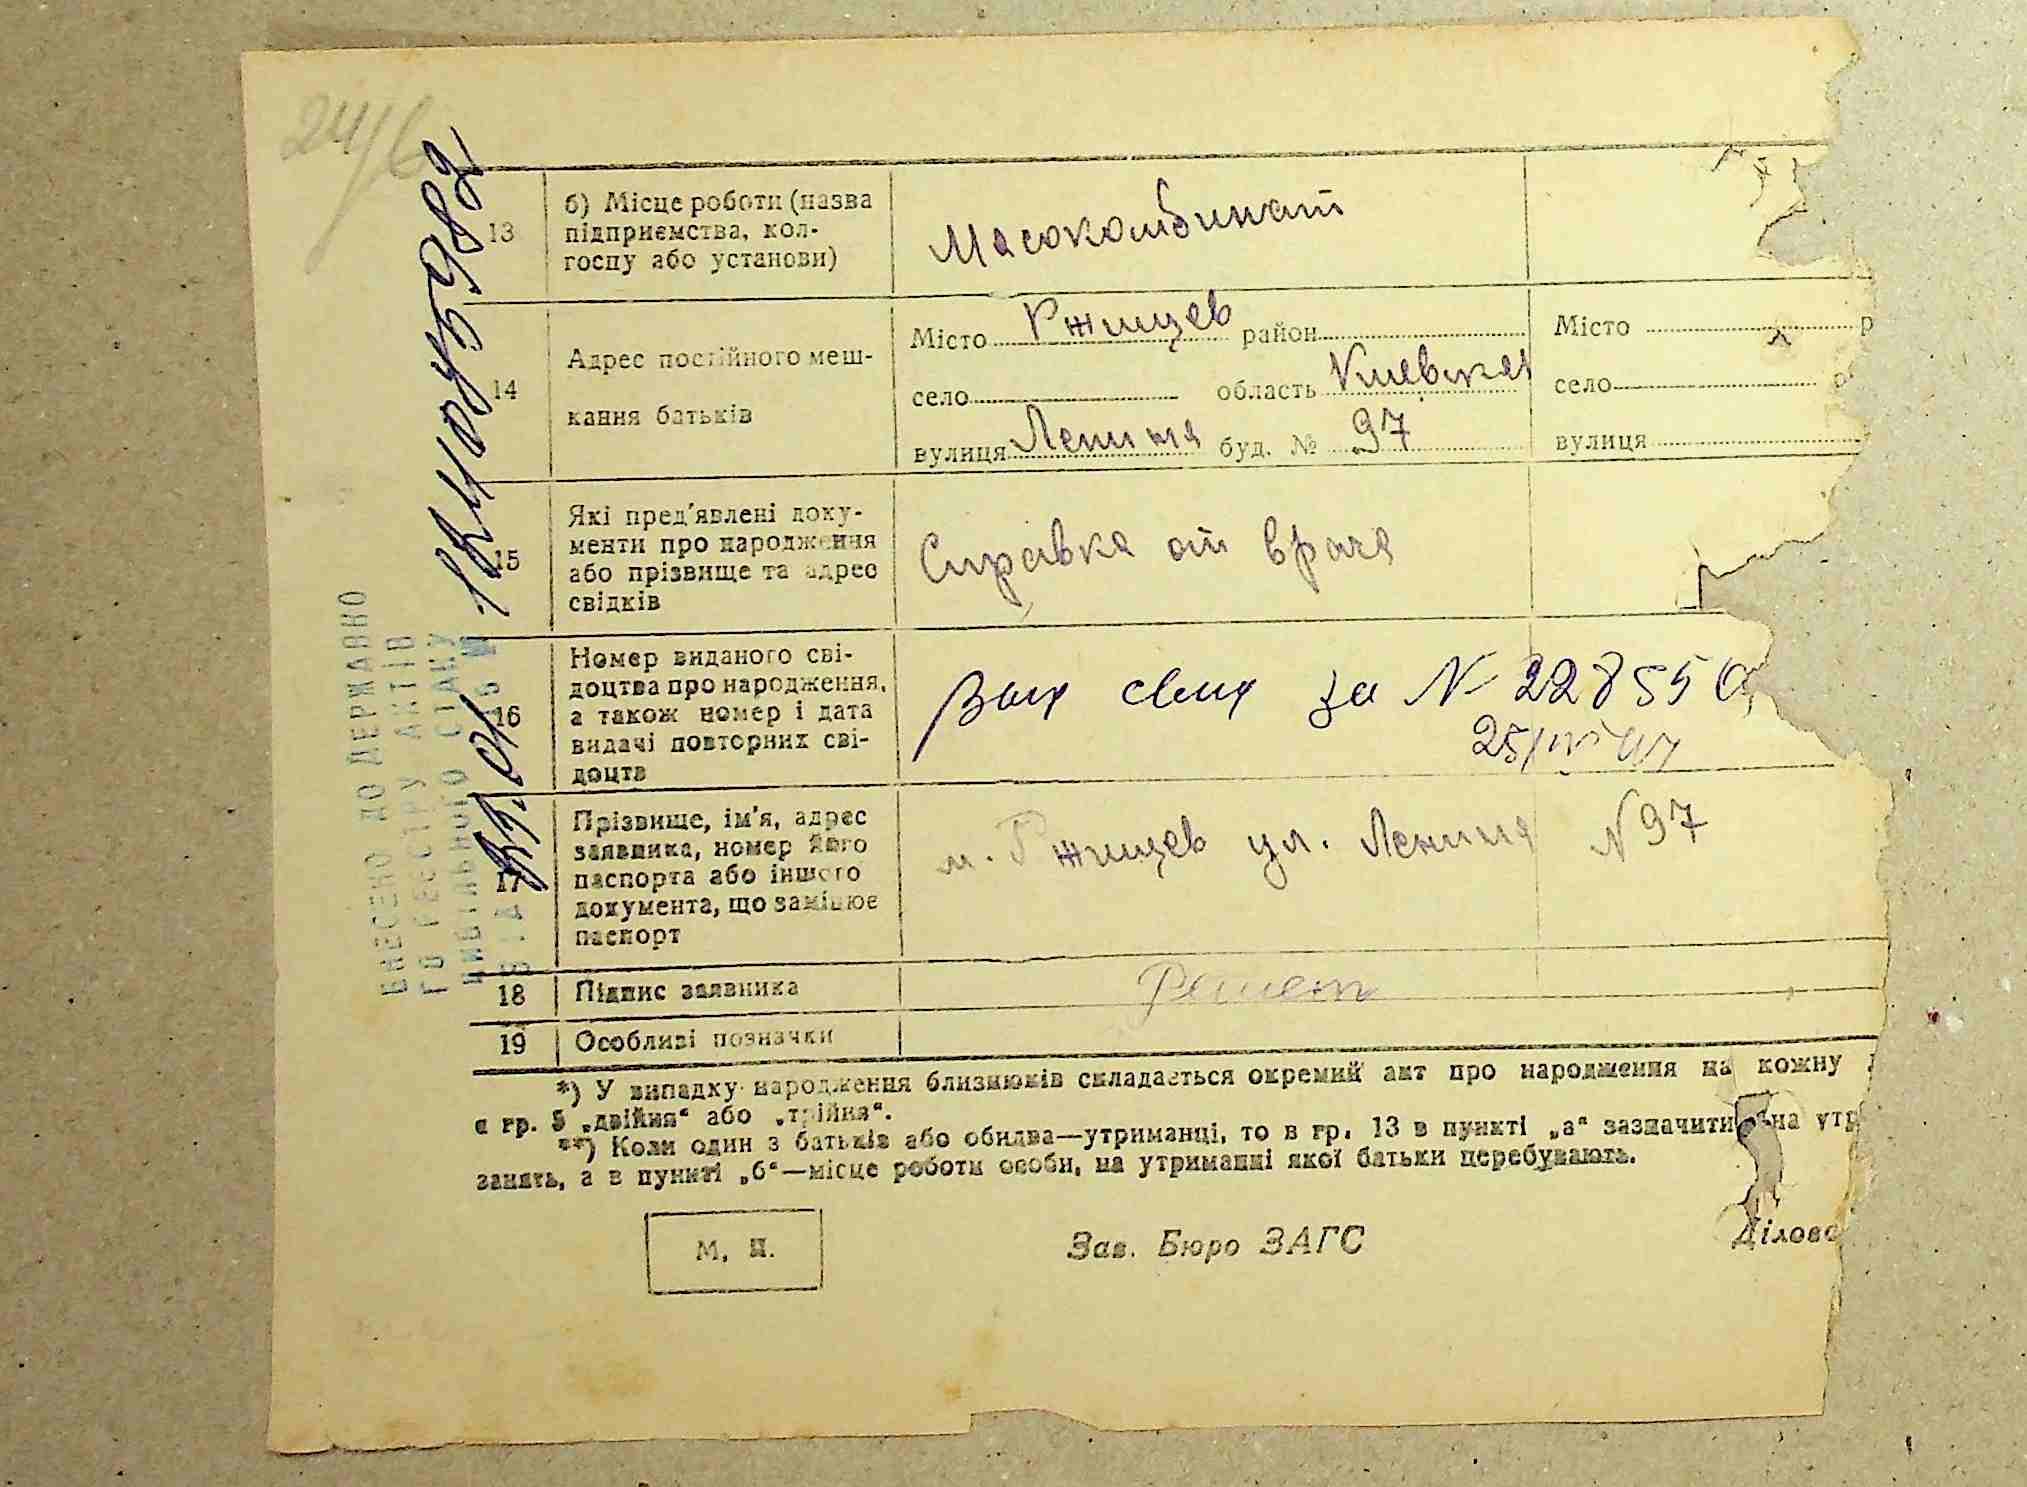 24/6
13
б) Місце роботи (назва
підприємства, кол-
госпу або установи)
Масокомбинат
14
Адрес постійного меш-
кання батьків
Місто Ржищев район
село область Киевская
вулиця Ленина буд. № 97
Місто р
село
вулиця
15
Які пред'явлені доку-
менти про народження
або прізвище та адрес
свідків
Справка от врача
16
Номер виданого сві-
доцтва про народження,
а також номер і дата
видачі повторних сві-
доцтв
за №
17
Прізвище, ім'я, адрес
заявника, номер його
паспорта або іншого
документа, що замінює
паспорт
м. Ржищев ул. Ленина №97
18
Підпис заявника
19
Особливі позначки
*) У випадку народження близнюків складається окремий акт про народження на кожну
є гр. 5 „двійня“ або „трійня“.
**) Коли один з батьків або обидва—утриманці, то в гр. 13 в пункті „а“ зазначити на утр
занять, а в пункті „б“—місце роботи особи, на утриманні якої батьки перебувають.
М. П.
Зав. Бюро ЗАГС
Ділово
ВНЕСЕНО ДО ДЕРЖАВНО
ГО РЕЄСТРУ АКТІВ
ЦИВІЛЬНОГО СТАНУ